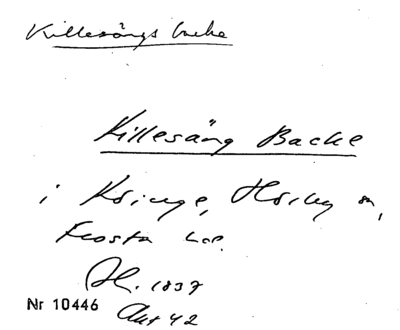 Killesängs backe
Killesäng Backe
i Köinge, Hörby sn,
Frosta hd.
1837
Nr 10446 Akt 42